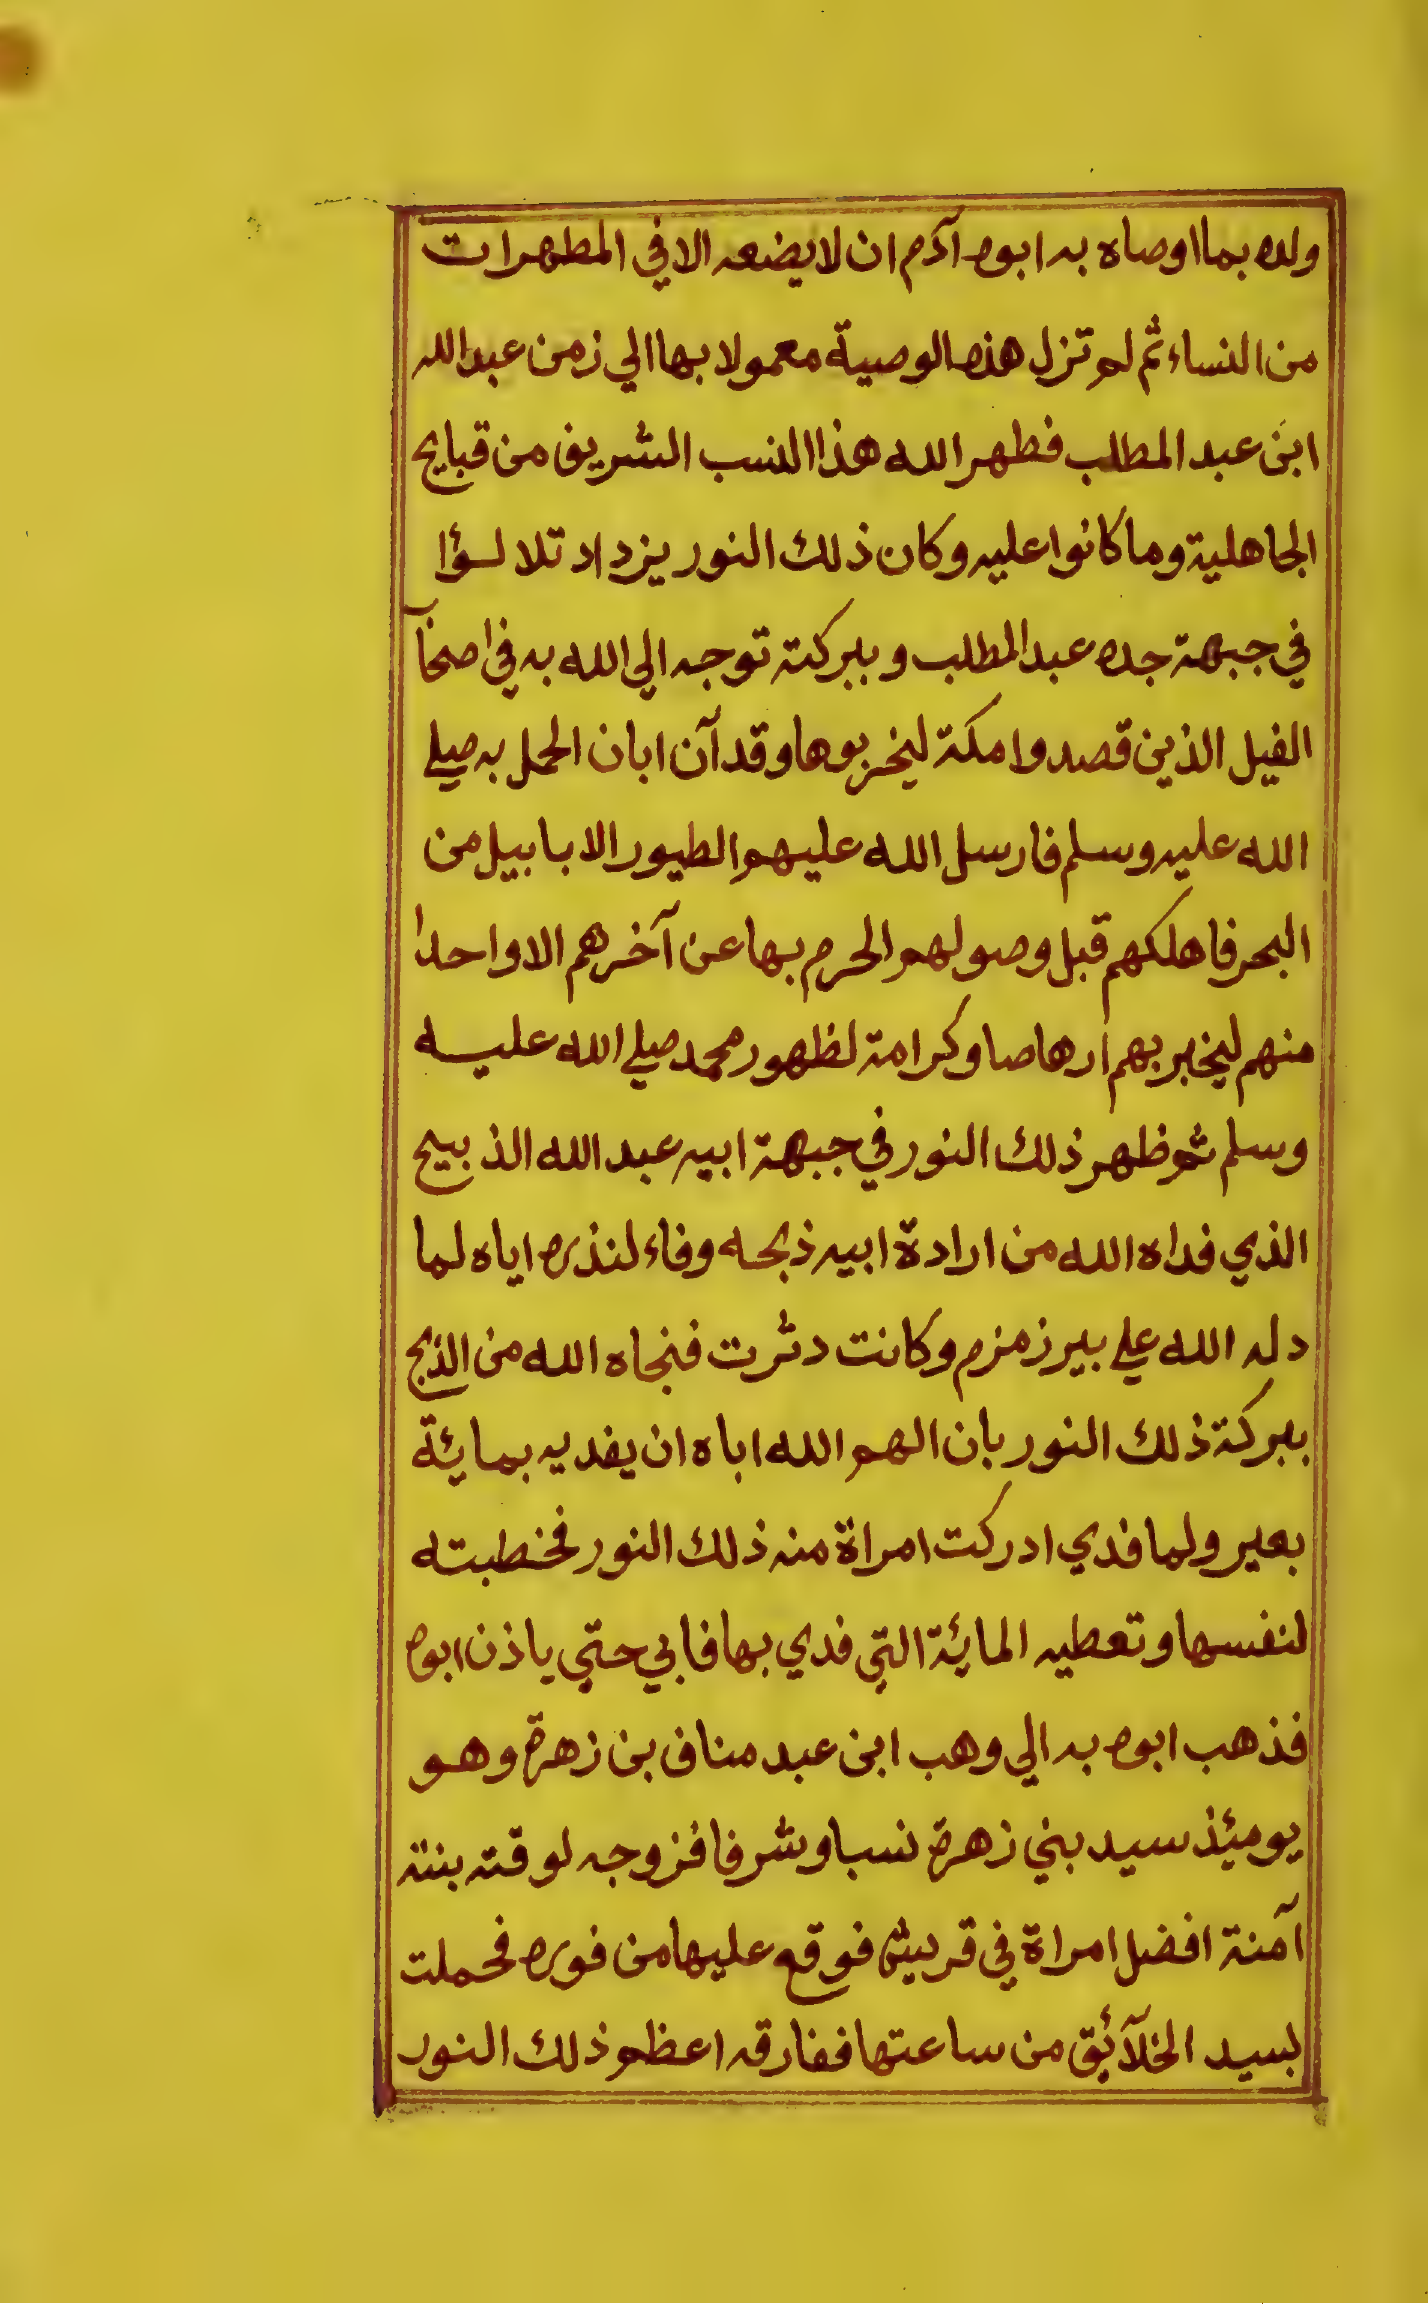 ولده بما اوصاه به ابوه آدم ان لا يضعه الا في المطهرات
من النساء ثم لم تزل هذه الوصية معمولا بها الي زمن عبد الله
ابن عبد المطلب فطهر الله هذا النسب الشريف من قبايح
الجاهلية وما كانوا عليه وكان ذلك النور يزداد تلالؤا
في جبهة جده عبد المطلب وببركته توجه الي الله به في اصحاب
الفيل الذين قصدوا مكة ليخربوها وقد آن ابان الحمل به صلي
الله عليه وسلم فارسل الله عليهم الطيور الابابيل من
البحر فاهلكهم قبل وصولهم الحرم بها عن آخرهم الا واحدا
منهم ليخبر بهم ارهاصا وكرامة لظهور محمد صلي الله عليه
وسلم ثم ظهر ذلك النور في جبهة ابيه عبد الله الذبيح
الذي فداه الله من ارادة ابيه ذبحه وفاء لنذره اياه لما
دله الله علي بير زمزم وكانت دثرت فنجاه الله من الذبح
ببركة ذلك النور بان الهم الله اباه ان يفديه بمائة
بعير ولما فدي ادركت امراة منه ذلك النور فخطبته
لنفسها وتعطيه المائة التي فدي بها فابي حتي ياذن ابوه
فذهب ابوه به الي وهب ابن عبد مناف بن زهرة وهو
يومئذ سيد بني زهرة نسبا وشرفا فزوجه لوقته بنته
آمنة افضل امراة في قريش فوقع عليها من فوره فحملت
بسيد الخلآئق من ساعتها ففارقه اعظم ذلك النور